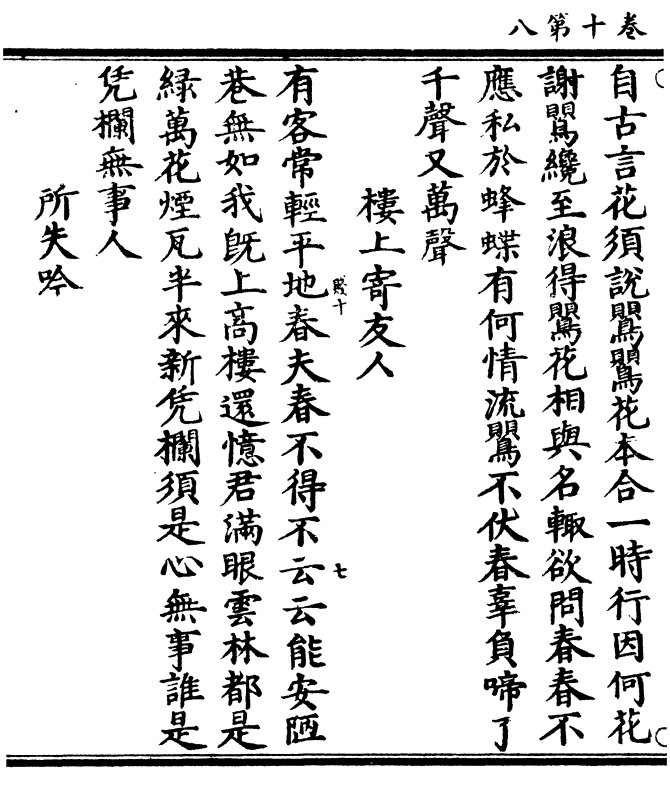 卷十第八
自古言花須說鸎鸎花本合一時行因何花
謝鸎纔至浪得鸎花相與名輙欲問春春不
應私於蜂蝶有何情流鸎不伏春辜負啼了
千聲又萬聲
樓上寄友人
有客常輕平地春夫春不得不云云能安陋
賤十
七
巷無如我旣上高樓還憶君滿眼雲林都是
緑萬花煙瓦半來新凭欄須是心無事誰是
凭欄無事人
所失吟